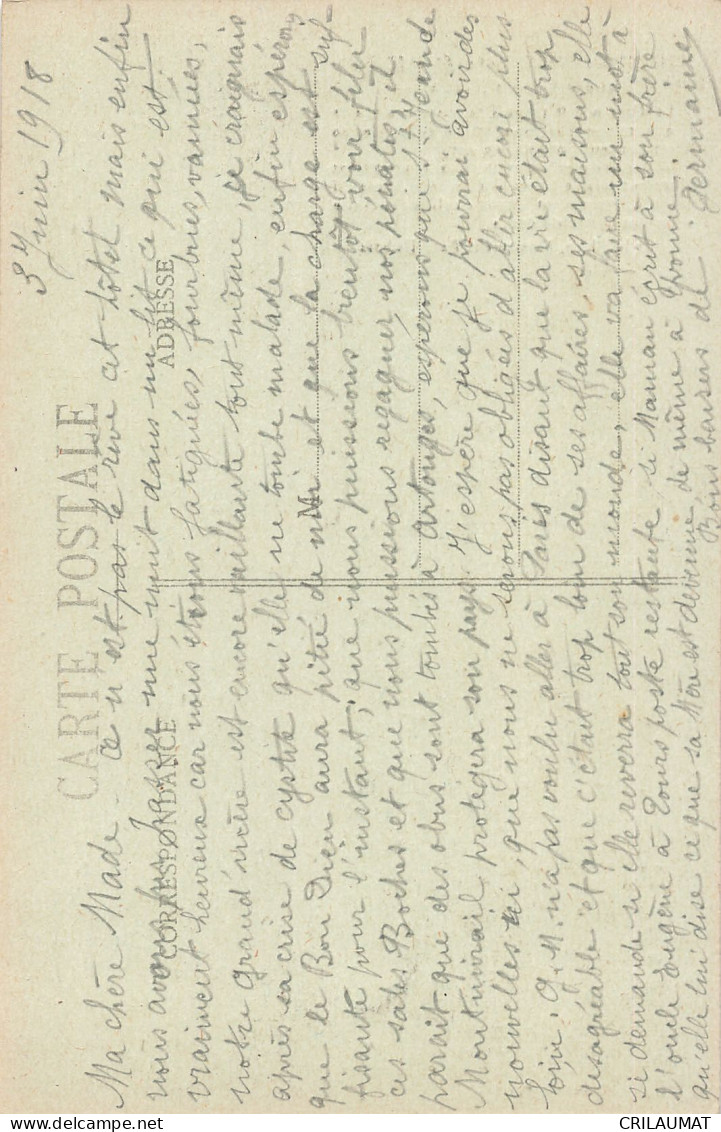 3 Juin 1918
CARTE POSTALE
CORRESPONDANCE
ADRESSE
Ma chère Made - ce n'est pas le rêve cet hôtel mais enfin
nous avons pu passer une nuit dans un lit ce qui est
vraiment heureux car nous étions fatiguées, fourbues, vannées,
notre grand'mère est encore vaillante tout même, je craignais
après sa crise de cystite qu'elle ne tombe malade, enfin espérons
que le Bon Dieu aura pitié de nous et que la charge est suf-
fisante pour l'instant, que nous puissions bientôt voir filer
ces sales Boches et que nous puissions regagner nos pénates, il
parait que des obus sont tombés à Artonges, espérons que
Montmirail protègera son pays. J'espère que je pourrai avoir des
nouvelles ici, que nous ne serons pas obligées d'aller encore plus
loin. G.M. n'a pas voulu aller à Paris disant que la vie était trop
désagréable et que c'était trop loin de ses affaires, ses maisons, elle
se demande si elle reverra tout son monde, elle va faire un mot à
l'oncle Eugène à Tours poste restante si Maman écrit à son frère
qu'elle lui dise ce que sa Mère est devenue, de même à Yvonne.
Bons baisers de Germaine
CRILAUMAT